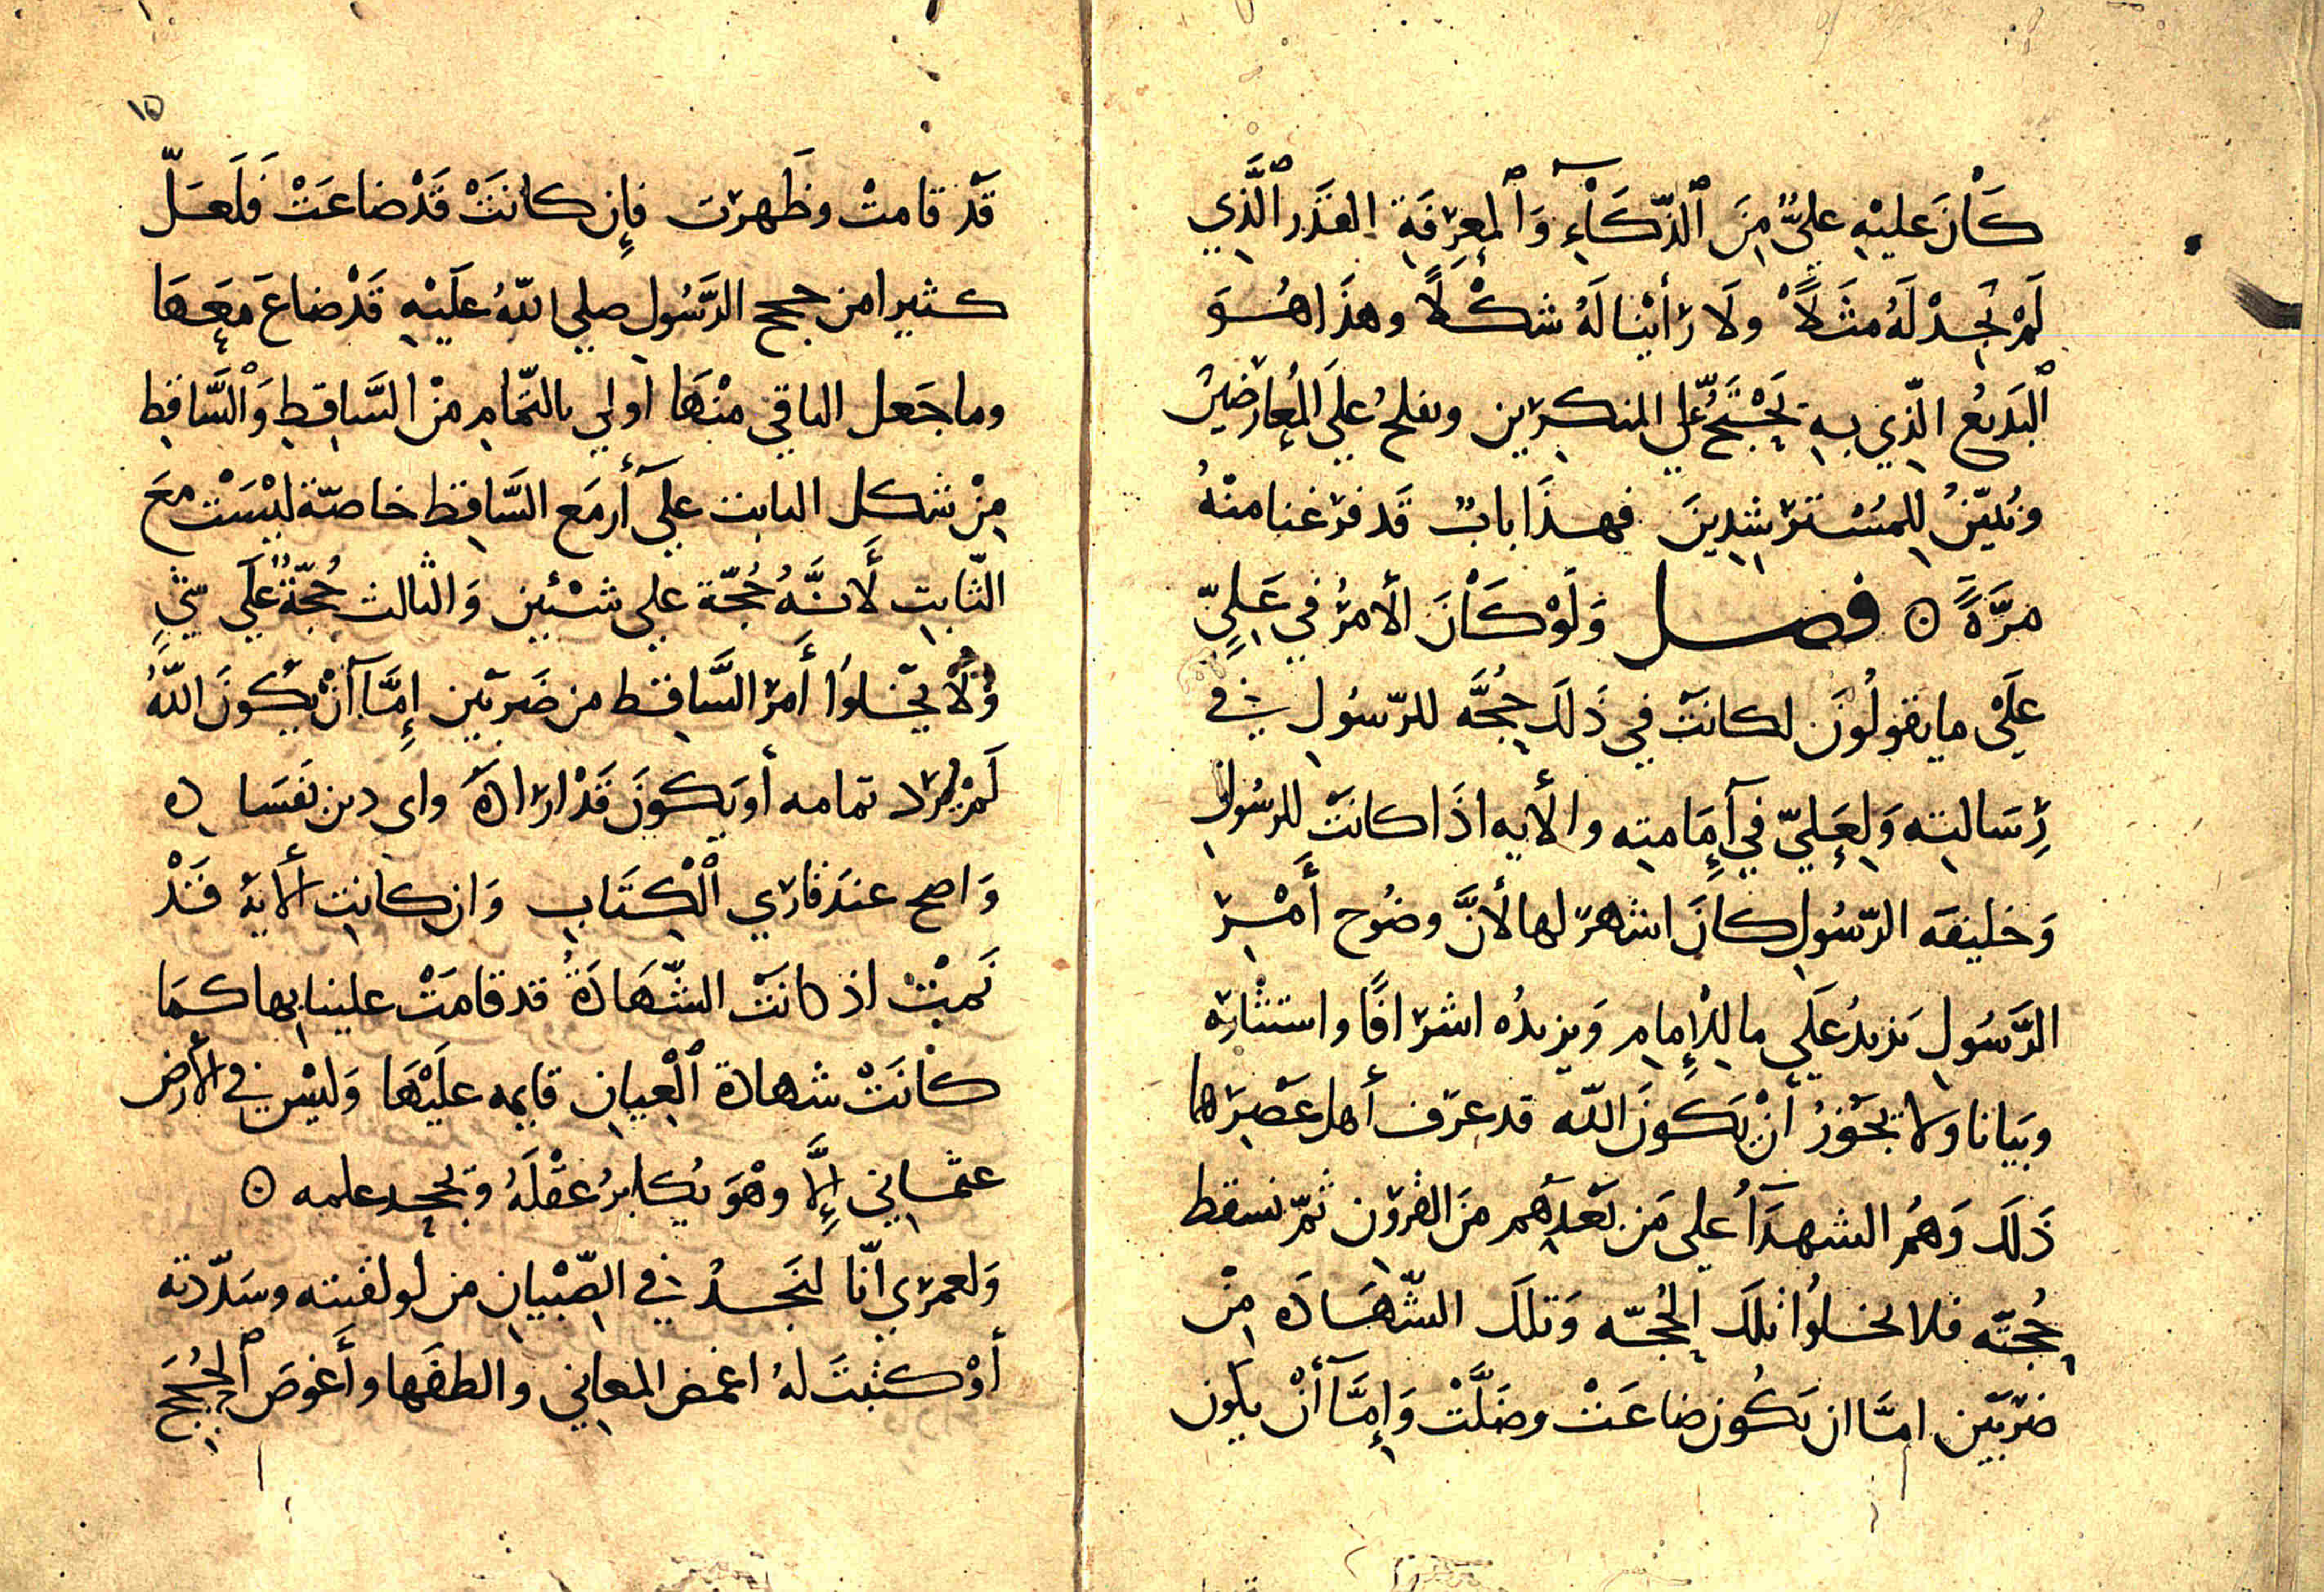 كَانَ عليْهِ عليٌّ مِنَ ٱلذّكَآءِ وَٱلمعرِفَةِ القَدَر ٱلَّذِي
لَمْ نَجِدْ لَهُ مثَلًا ولَا رَأيْنا لَهُ شكْلًا وهذَا هُوَ
ٱلبَديعُ الّذِي بهِ نَحْتَجُّ علي المنكرين ونفلحُ علَي المُعارضينَ
ونُبيّنُ لِلمُسْترشِدِينَ فهذَا بابٌ قَد فرَغنا منْهُ
مَرَّةً ⊙ فصل وَلَوْ كَانَ الأمرُ في عَلِيٍّ
علَيْ ما يقولُونَ لكانَتْ في ذَلكَ حُجَّه للرّسُولِ في
رِسَالته وَلِعَلِيّ في إمَامته والأيه اذَا كانَتْ للرسُولِ
وَخليفه الرّسُولِ كانَ اشهرَ لها لأنَّ وضُوح أَمْرِ
الرَّسُولِ يَزيدُ علَي ما للإِمامِ وَيزيدُه اشرَافًا واستنارَه
وبَيانا ولا يجَوْزُ أَنْ يَكونَ اللّه قد عرّف أهل عَصْرِهما
ذَلكَ وَهُمُ الشهدَآءُ علي مَن بَعْدَهم مِنَ القرُون ثمّ نسقط
حُجّته فلا تخلُوا تلكَ الحُجّه وَتلكَ الشّهَادَه مِنْ
ضرْبَيَن امّا ان يَكُون ضاعَتْ وضَلَّتْ وَإِمَّآ أَنْ يكون
١٥
قَدْ قامتْ وظَهرَت فإِن كانَتْ قَدْ ضاعَتْ فَلَعَلّ
كثيرا من حجج الرَّسُولِ صلي اللّهُ علَيْهِ قَدْ ضاعَ معَهَا
وما جَعل الباقي منْهَا أولي بالتّمامِ منْ السَّاقِطِ وَٱلسَّاقط
مِنْ شكل الثابت علي أَمر السَّاقط خاصّة ليْسَتْ معَ
الثّابتِ لأنَّهُ حُجّة علي شيْئين وَالثالث حُجّةٌ علَي شيٍ
وَلَا يخلوا أَمر السَّاقط من ضَربَين إِمَّآ أَنْ يكُونَ اللّهُ
لَمْ يُرِد تمامه أو يَكونَ قَدْ ارَادَه واي دين فسَاده
وَاضح عندَ قارَي ٱلْكتَابِ وَان كانتِ الأيَة قَدْ
تَمَّتْ اذ كانَتْ الشّهَادَةُ قد قامَتْ علينا بها كمَا
كانَتْ شهادة ٱلْعِيانِ قايمه علَيْهَا وَليْس في الأرض
عثماني إِلَّا وهْوَ يُكابرُ عَقْلَهُ وَيجحد علمه ⊙
وَلعمرَي انّا لنَجدُ في الصّبْيانِ من لو لقنته وسَدّدته
أوْ كتبتَ لهُ اغمض المعاني والطفَها وأَغوصَ ٱلحُجَج